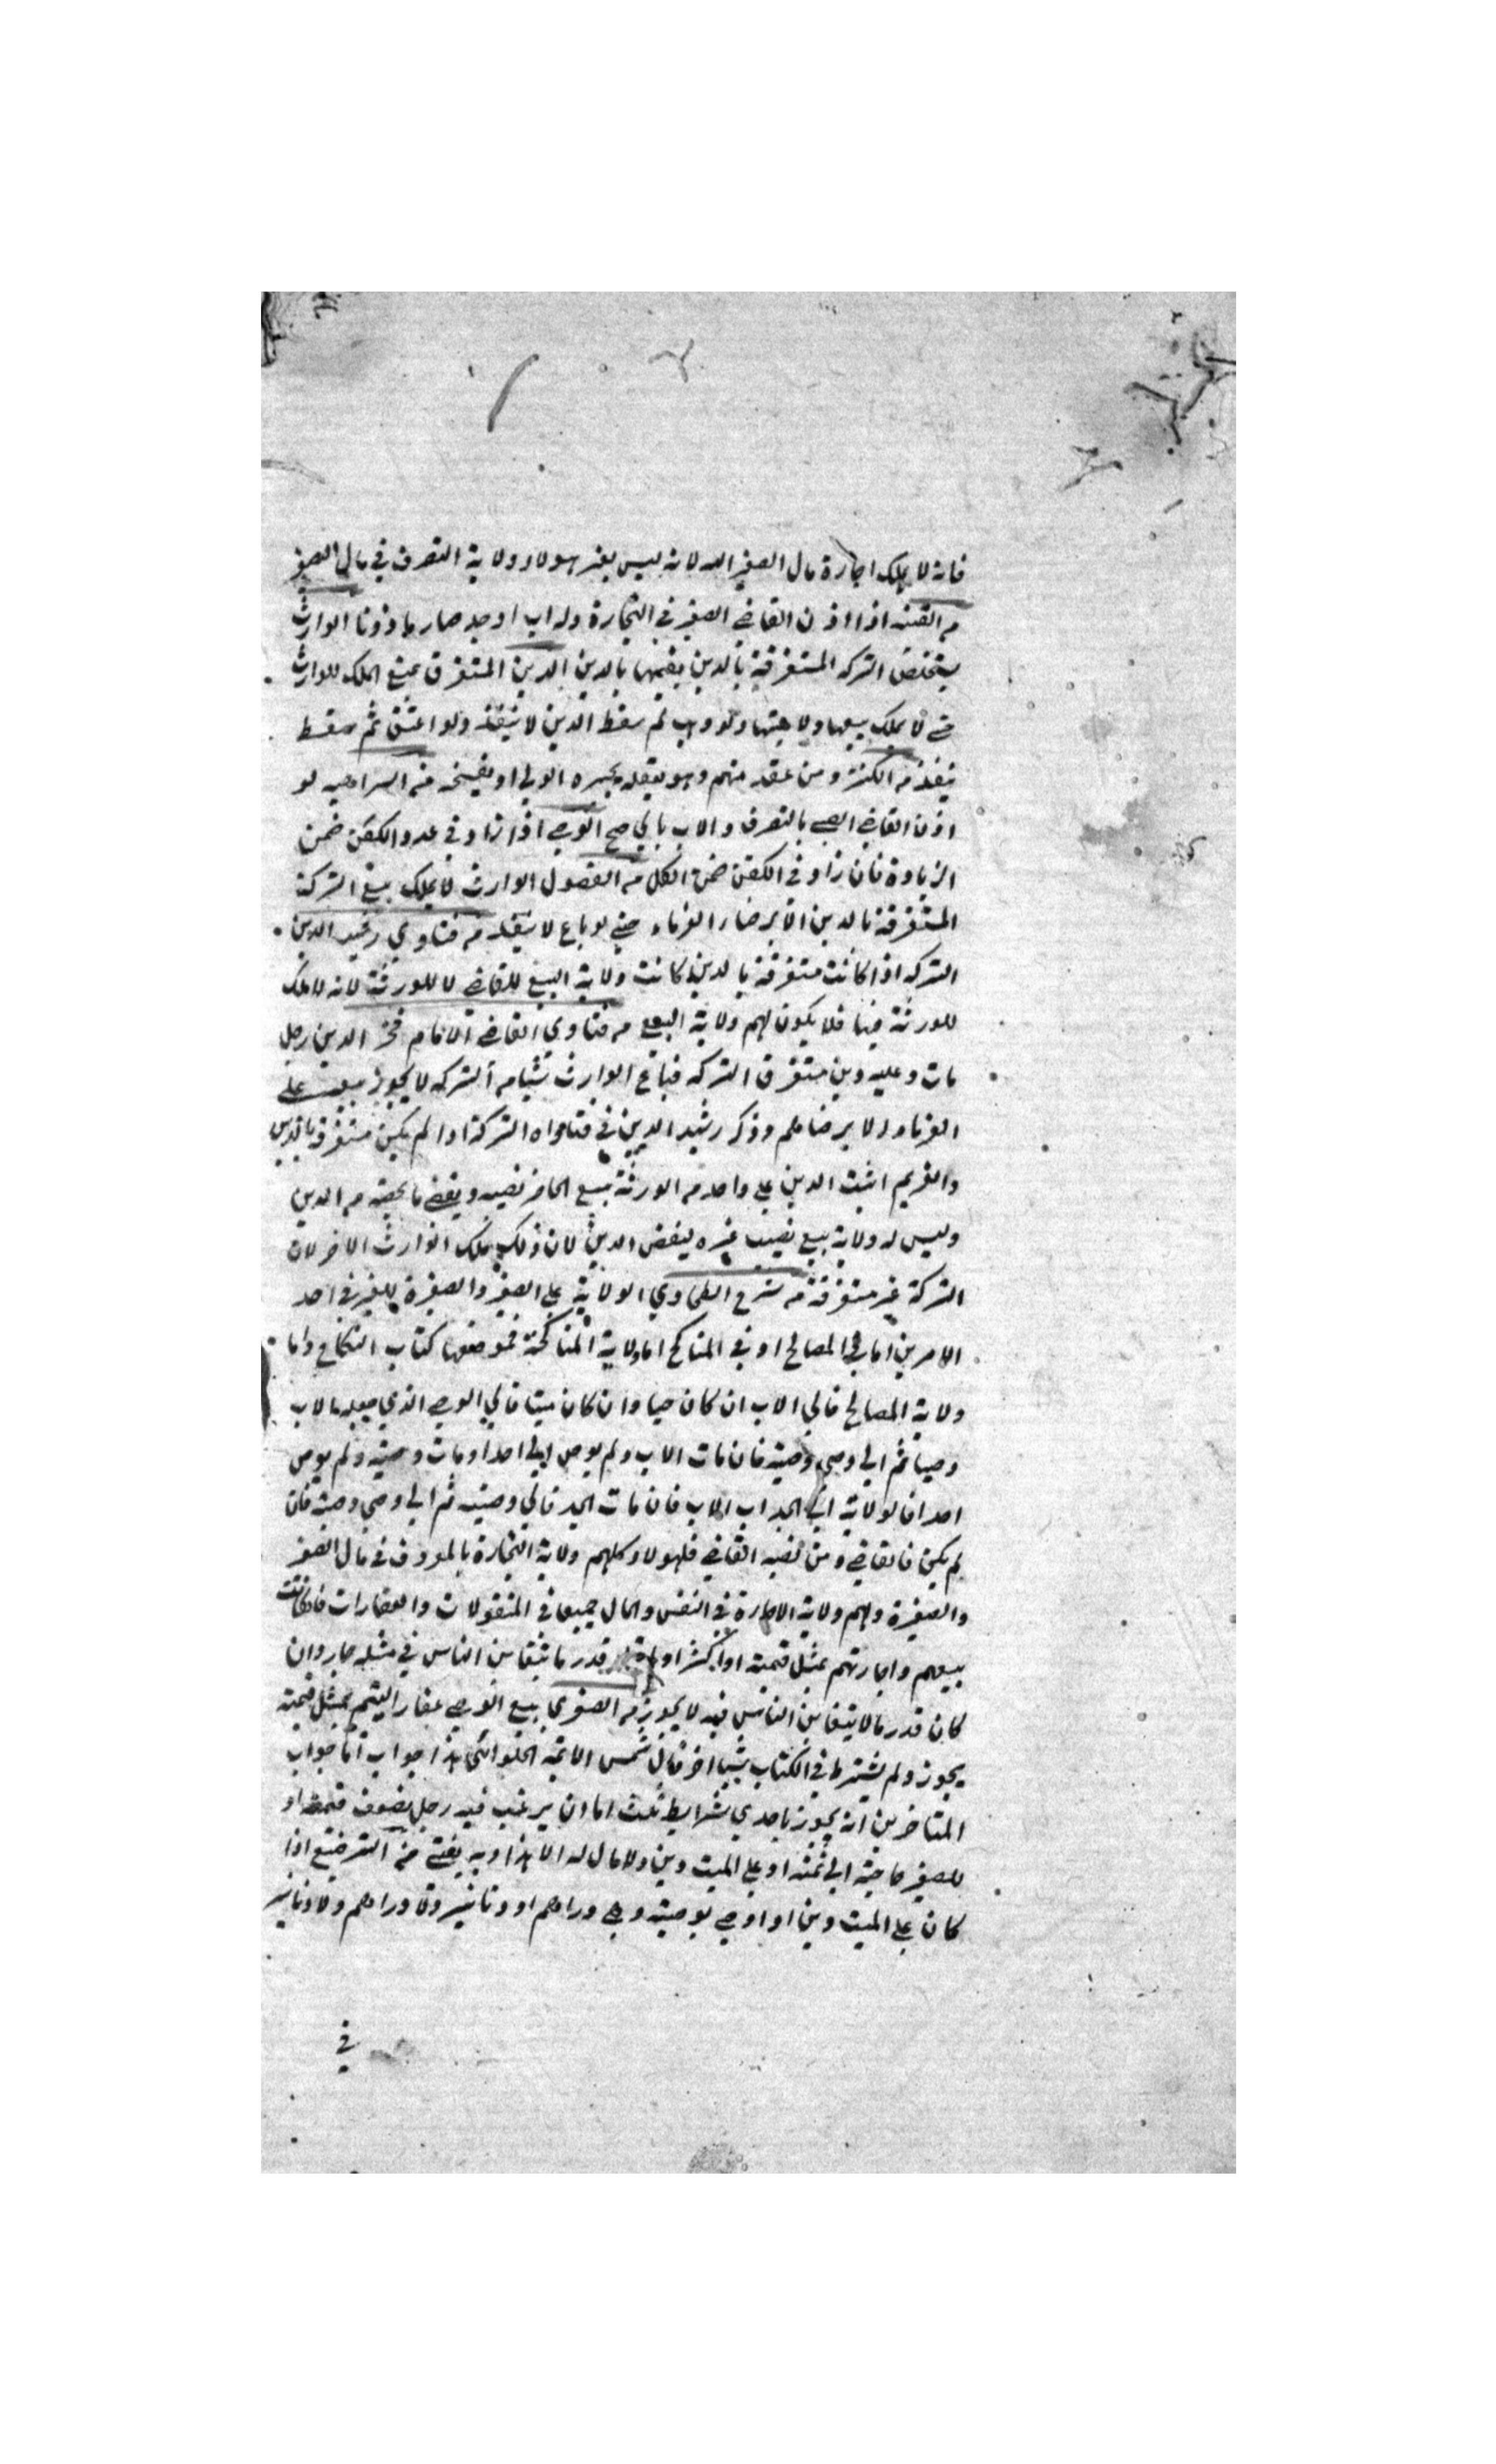 فانه لا يملك اجارة مال الصغير لانه ليس لغير هولاء ولاية التصرف في مال الصغير
من القنيه اذا اذن القاضي الصغير في التجارة وله اب او جد صار ماذونا الوارث
يستخلص التركه المستغرقة بالدين بقيمتها بالدين الدين المستغرق يمنع الملك للوارث
حتى لا يملك بيعها ولا هبتها ولو وهب ثم سقط الدين لا ينفذ ولو اعتق ثم سقط
ينفذ من الكنز ومن عقد منهم وهو يعقله يجيزه الولي او يفسخه من السراجيه لو
اذن القاضي الصبي بالتصرف والاب يابي صح الوصي اذا زاد في عدد الكفن ضمن
الزيادة فان زاد في الكفن ضمن الكل من الفصول الوارث لا يملك بيع التركة
المستغرقة بالدين الا برضاء الغرماء حتى لو باع لا ينفذ من فتاوي رشيد الدين
التركه اذا كانت مستغرقة بالدين كانت ولاية البيع للقاضي لا للورثة لانه لا ملك
للورثة فيها فلا يكون لهم ولاية البيع من فتاوي القاضي الامام فخر الدين رجل
مات وعليه دين مستغرق التركه فباع الوارث شيا من التركه لا يجوز بيعه على
الغرماء الا برضاهم وذكر رشيد الدين في فتاواه التركة اذا لم يكن مستغرقة بالدين
والغريم اثبت الدين على واحد من الورثة يبيع الحاضر نصيبه ويقضي ما يخصه من الدين
وليس له ولاية بيع نصيب غيره ليقضي الدين لان ذلك ملك الوارث الاخر لان
التركة غير مستغرقة من شرح الطحاوي الولاية على الصغير والصغيرة للغير في احد
الامرين اما في المصالح او في المناكح اما ولاية المناكحة فموضعها كتاب النكاح واما
ولاية المصالح فالي الاب ان كان حيا وان كان ميتا فالي الوصي الذي جعله الاب
وصيا ثم الي وصي وصيه فان مات الاب ولم يوص الي احد او مات وصيه ولم يوص
احدا فالولاية الي الجد اب الاب فان مات الجد فالي وصيه ثم الي وصي وصيه فان
لم يكن فالقاضي ومن نصبه القاضي فلهولاء كلهم ولاية التجارة بالمعروف في مال الصغير
والصغيرة ولهم ولاية الاجارة في النفس والمال جميعا في المنقولات والعقارات فان كانت
بيعهم واجارتهم بمثل قيمته او اكثر او اقل قدر ما يتغابن الناس في مثله جاز وان
كان قدر ما لا يتغابن الناس فيه لا يجوز من الصغري بيع الوصي عقار اليتيم بمثل قيمته
يجوز ولم يشترط في الكتاب شيا اخر قال شمس الائمه الحلوائي هذا جواب اما جواب
المتاخرين انه يجوز باحدي شرايط ثلث اما ان يرغب فيه رجل بضعف قيمته او
للصغير حاجة الي ثمنه او على الميت دين ولا مال له الا هذا وبه يفتي من الترضيع اذا
كان على الميت دين او اوصي بوصيته وهي دراهم او دنانير ولا دراهم ولا دنانير
في